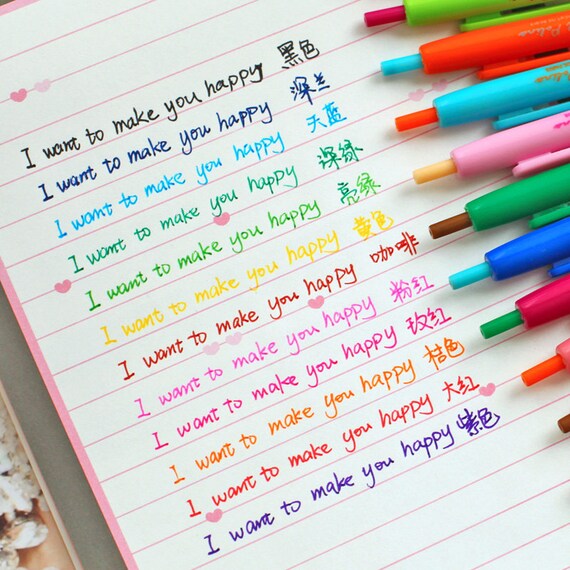 I want to make you happy 黑色
I want to make you happy 深兰
I want to make you happy 天蓝
I want to make you happy 深绿
I want to make you happy 亮绿
I want to make you happy 黄色
I want to make you happy 咖啡
I want to make you happy 粉红
I want to make you happy 玫红
I want to make you happy 桔色
I want to make you happy 大红
I want to make you happy 紫色